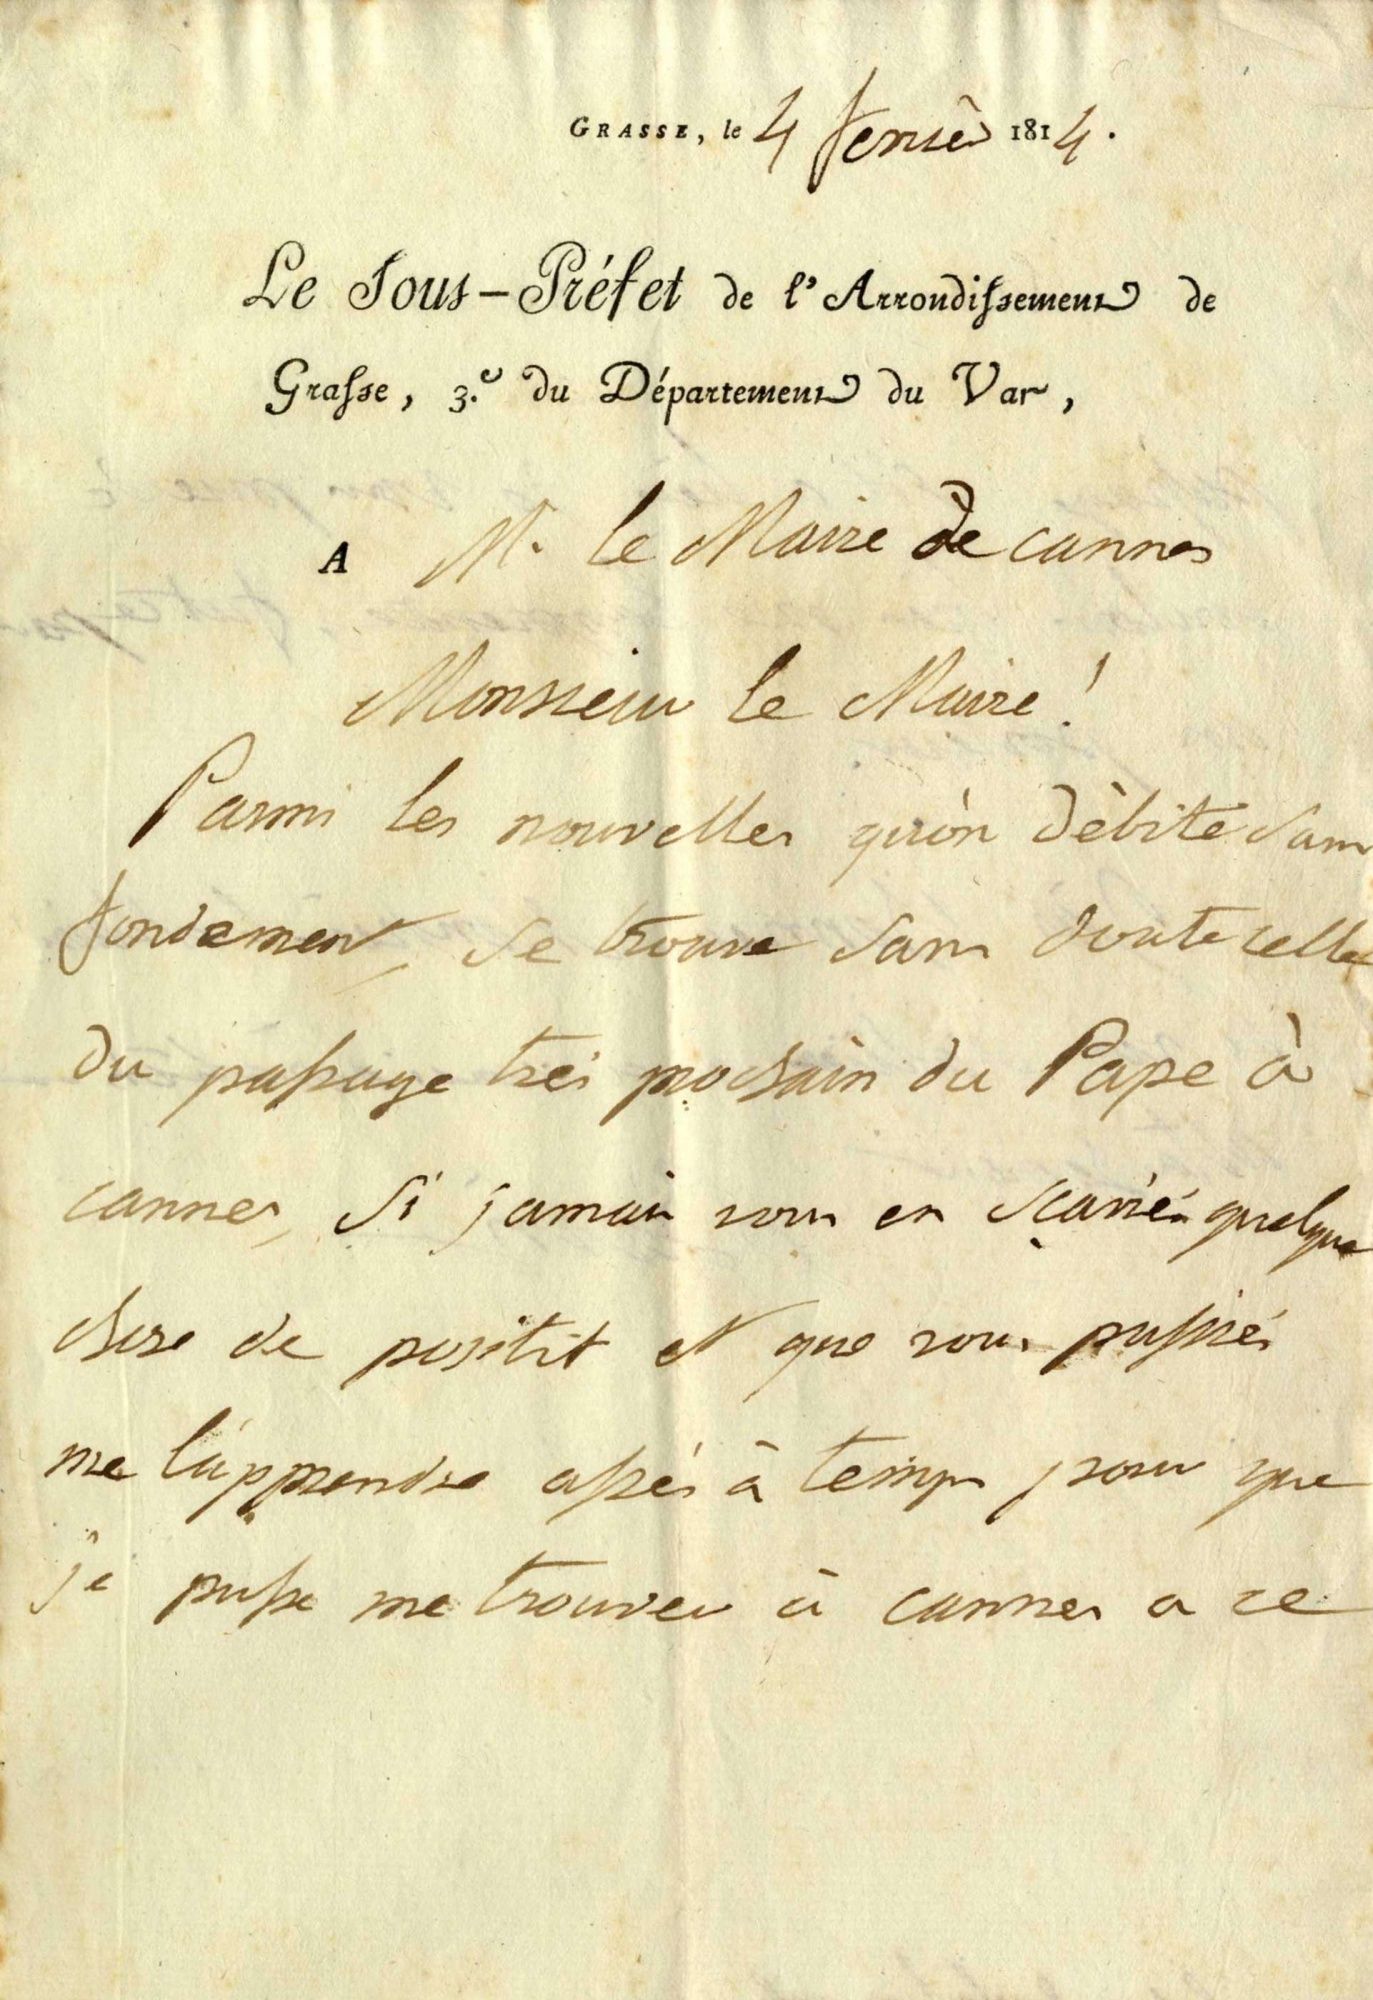 GRASSE, le 4 fevriè 1814.
Le Sous-Préfet de l'Arrondissement de
Grasse, 3.e du Département du Var,
A M. le Maire de cannes
Monsieur le Maire!
Parmi les nouvelles qu'on débite sans
fondement, se trouve sans doute celle
du passage trés prochain du Pape à
cannes, si jamais vous en sçaviés quelque
chose de positif et que vous pussiés
me l'apprendre assés à temps pour que
je pusse me trouver à cannes a ce